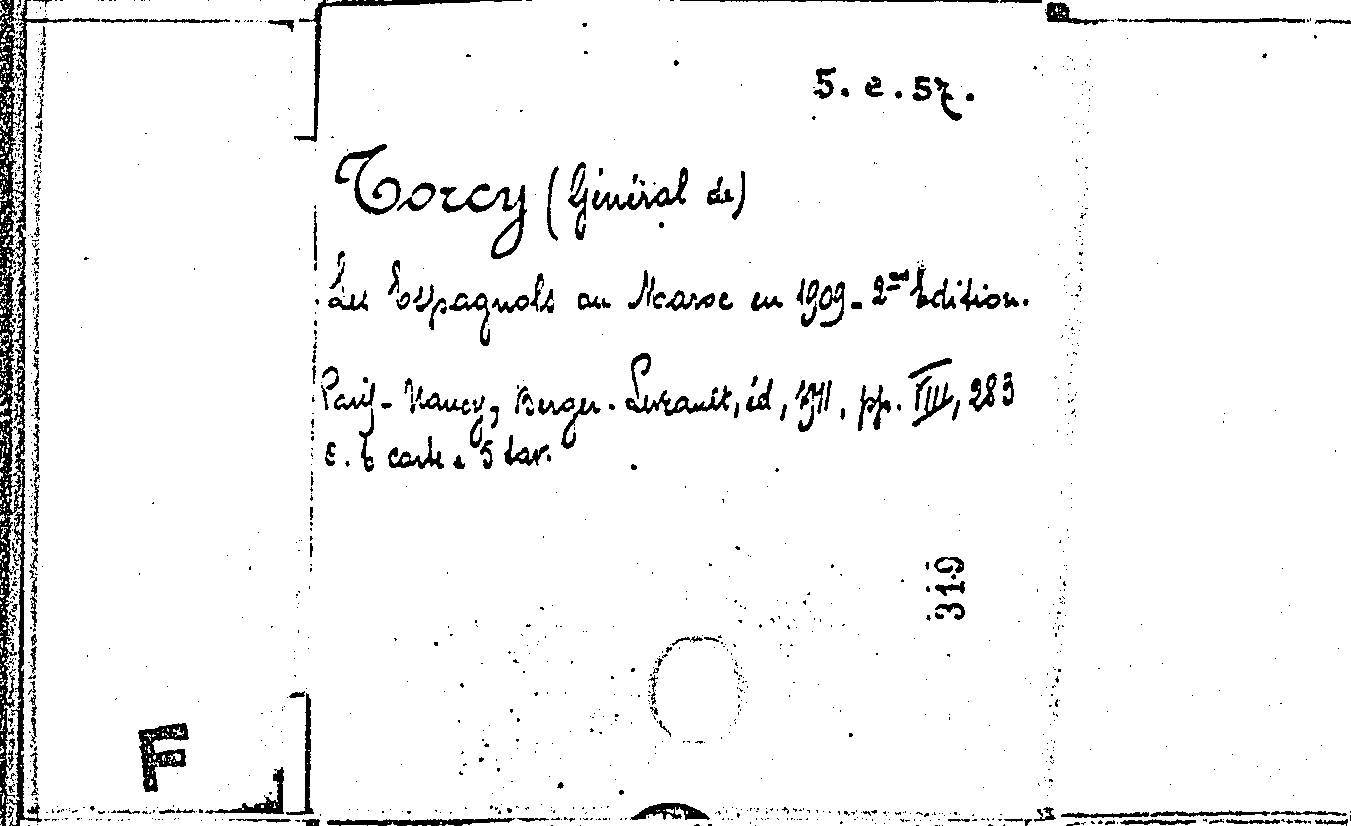 5. e. 57.
Torcy (Général de)
Les Espagnols au Maroc en 1909 - 2nd Edition.
Paris - Nancy, Berger - Levrault, éd, 1911, pp. VIII, 283
c. 6 carte e 5 tav.
319
F